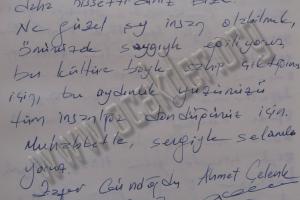 daha hissettirdiniz bize.
Ne güzel şey insan olabilmek,
Önünüzde saygıyla eğiliyoruz
bu kültüre böyle sahip çıktığınız
için, bu aydınlık yüzünüzü
tüm insanlığa döndüğünüz için.
Muhabbetle, sevgiyle selamlı
yoruz
Gündoğdu Ahmet Çelenk